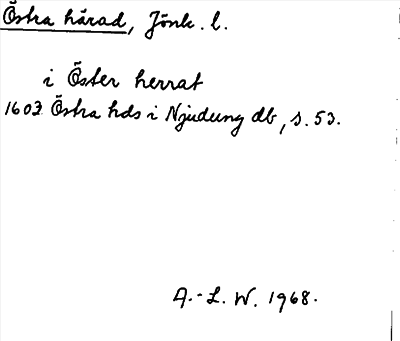 Östra härad, Jönk. l.
i Öster herrat
1603 Östra hds i Njudung db, s. 53.
A.-L. W. 1968.